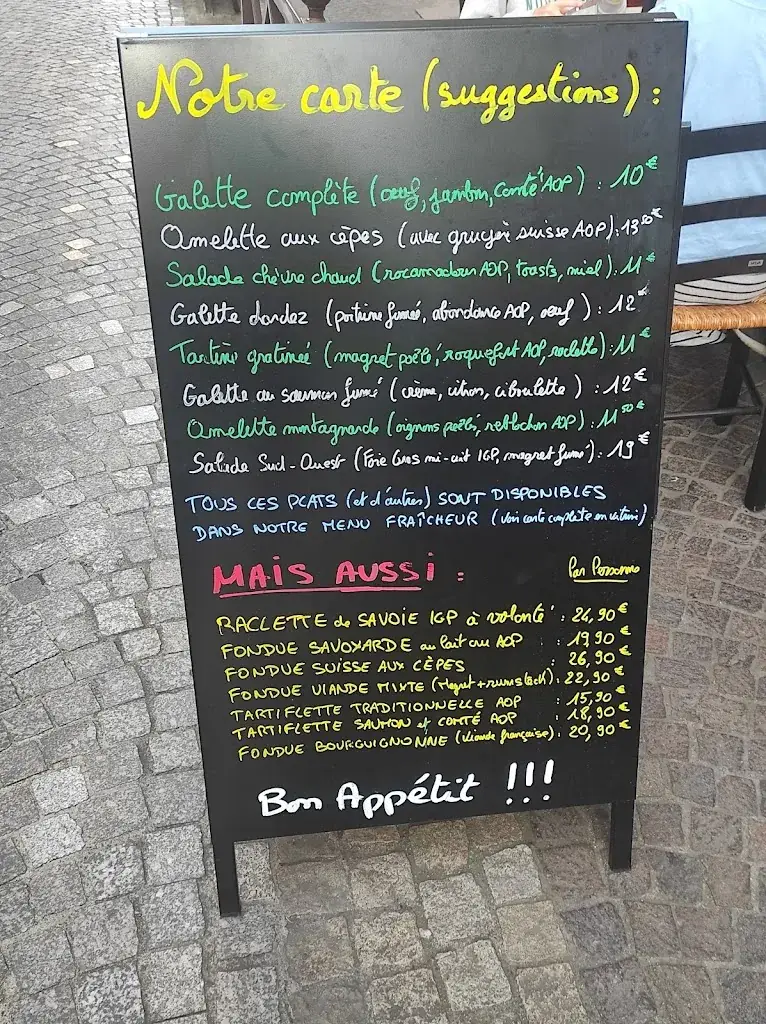 Notre carte (suggestions) :
Galette complète (œuf, jambon, Comté AOP) : 10€
Omelette aux cèpes (avec gruyère suisse AOP) : 13⁵⁰€
Salade chèvre chaud (rocamadour AOP, toasts, miel) : 11€
Galette (poitrine fumée, abondance AOP, œuf) : 12
Tartine gratinée (magret poêlé, roquefort AOP, raclette) : 11€
Galette au saumon fumé (crème, citron, ciboulette) : 12€
Omelette montagnarde (oignons poêlé, reblochon AOP) : 11⁵⁰€
Salade Sud-Ouest (Foie Gras mi-cuit IGP, magret fumé) : 19€
TOUS CES PLATS (et d'autres) SONT DISPONIBLES
DANS NOTRE MENU FRAÎCHEUR (voir carte complète en vitrine)
MAIS AUSSI :
Par Personne
RACLETTE de SAVOIE IGP à volonté : 24,90€
FONDUE SAVOYARDE au lait cru AOP : 19,90€
FONDUE SUISSE AUX CÈPES : 26,90€
FONDUE VIANDE MIXTE (Magret + rumsteck) : 22,90€
TARTIFLETTE TRADITIONNELLE AOP : 15,90€
TARTIFLETTE SAUMON et COMTÉ AOP : 18,90€
FONDUE BOURGUIGNONNE (viande française) : 20,90€
Bon Appétit !!!